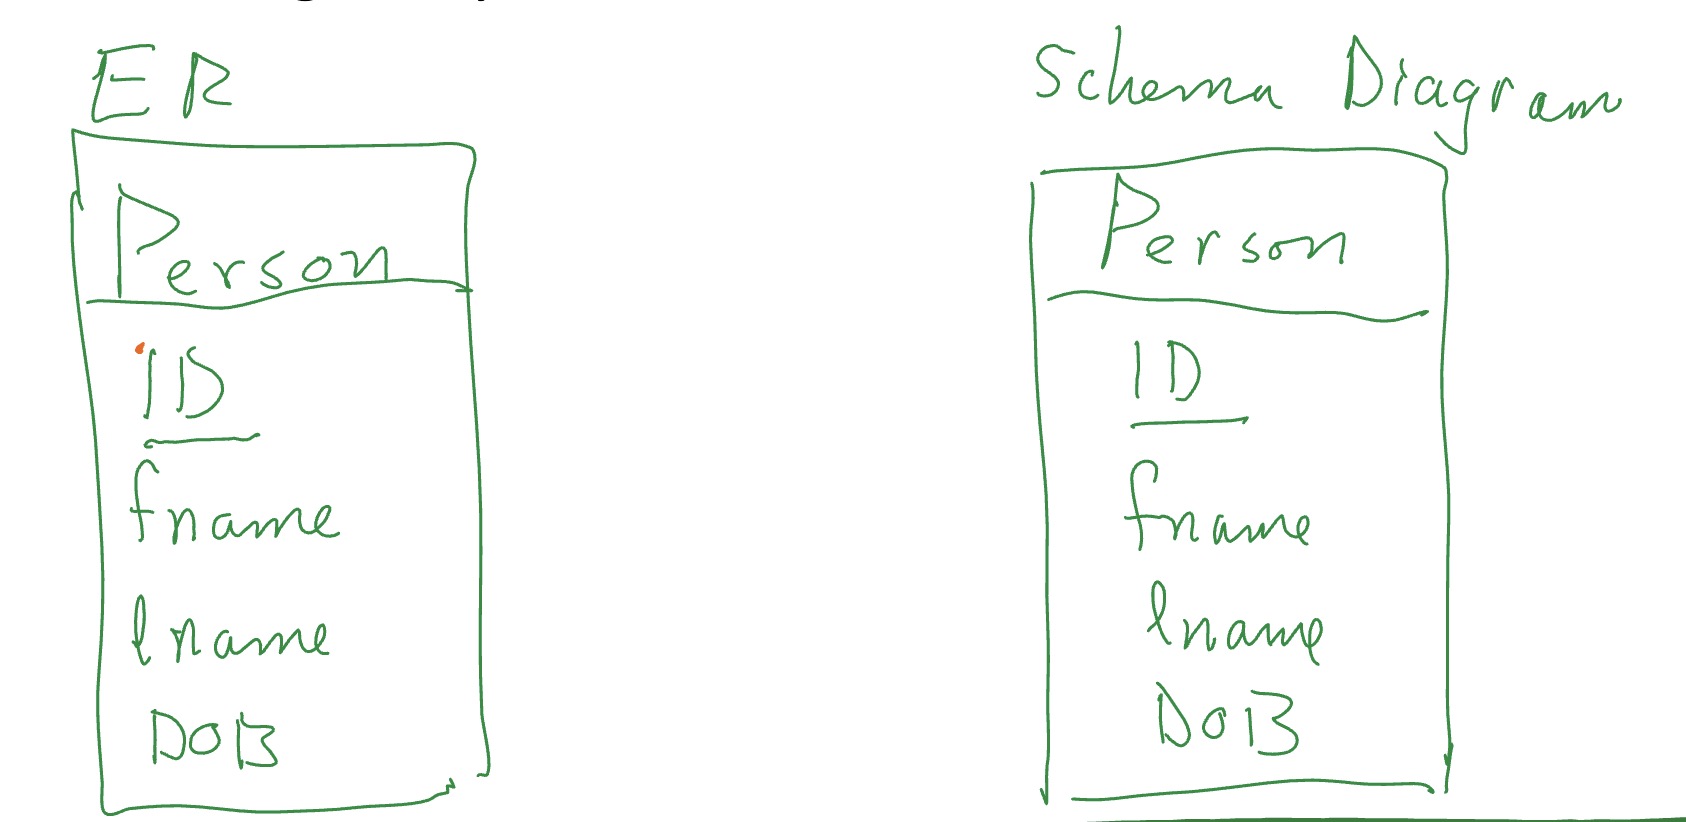 ER
Person
ID
fname
lname
DOB
Schema Diagram
Person
ID
fname
lname
DOB